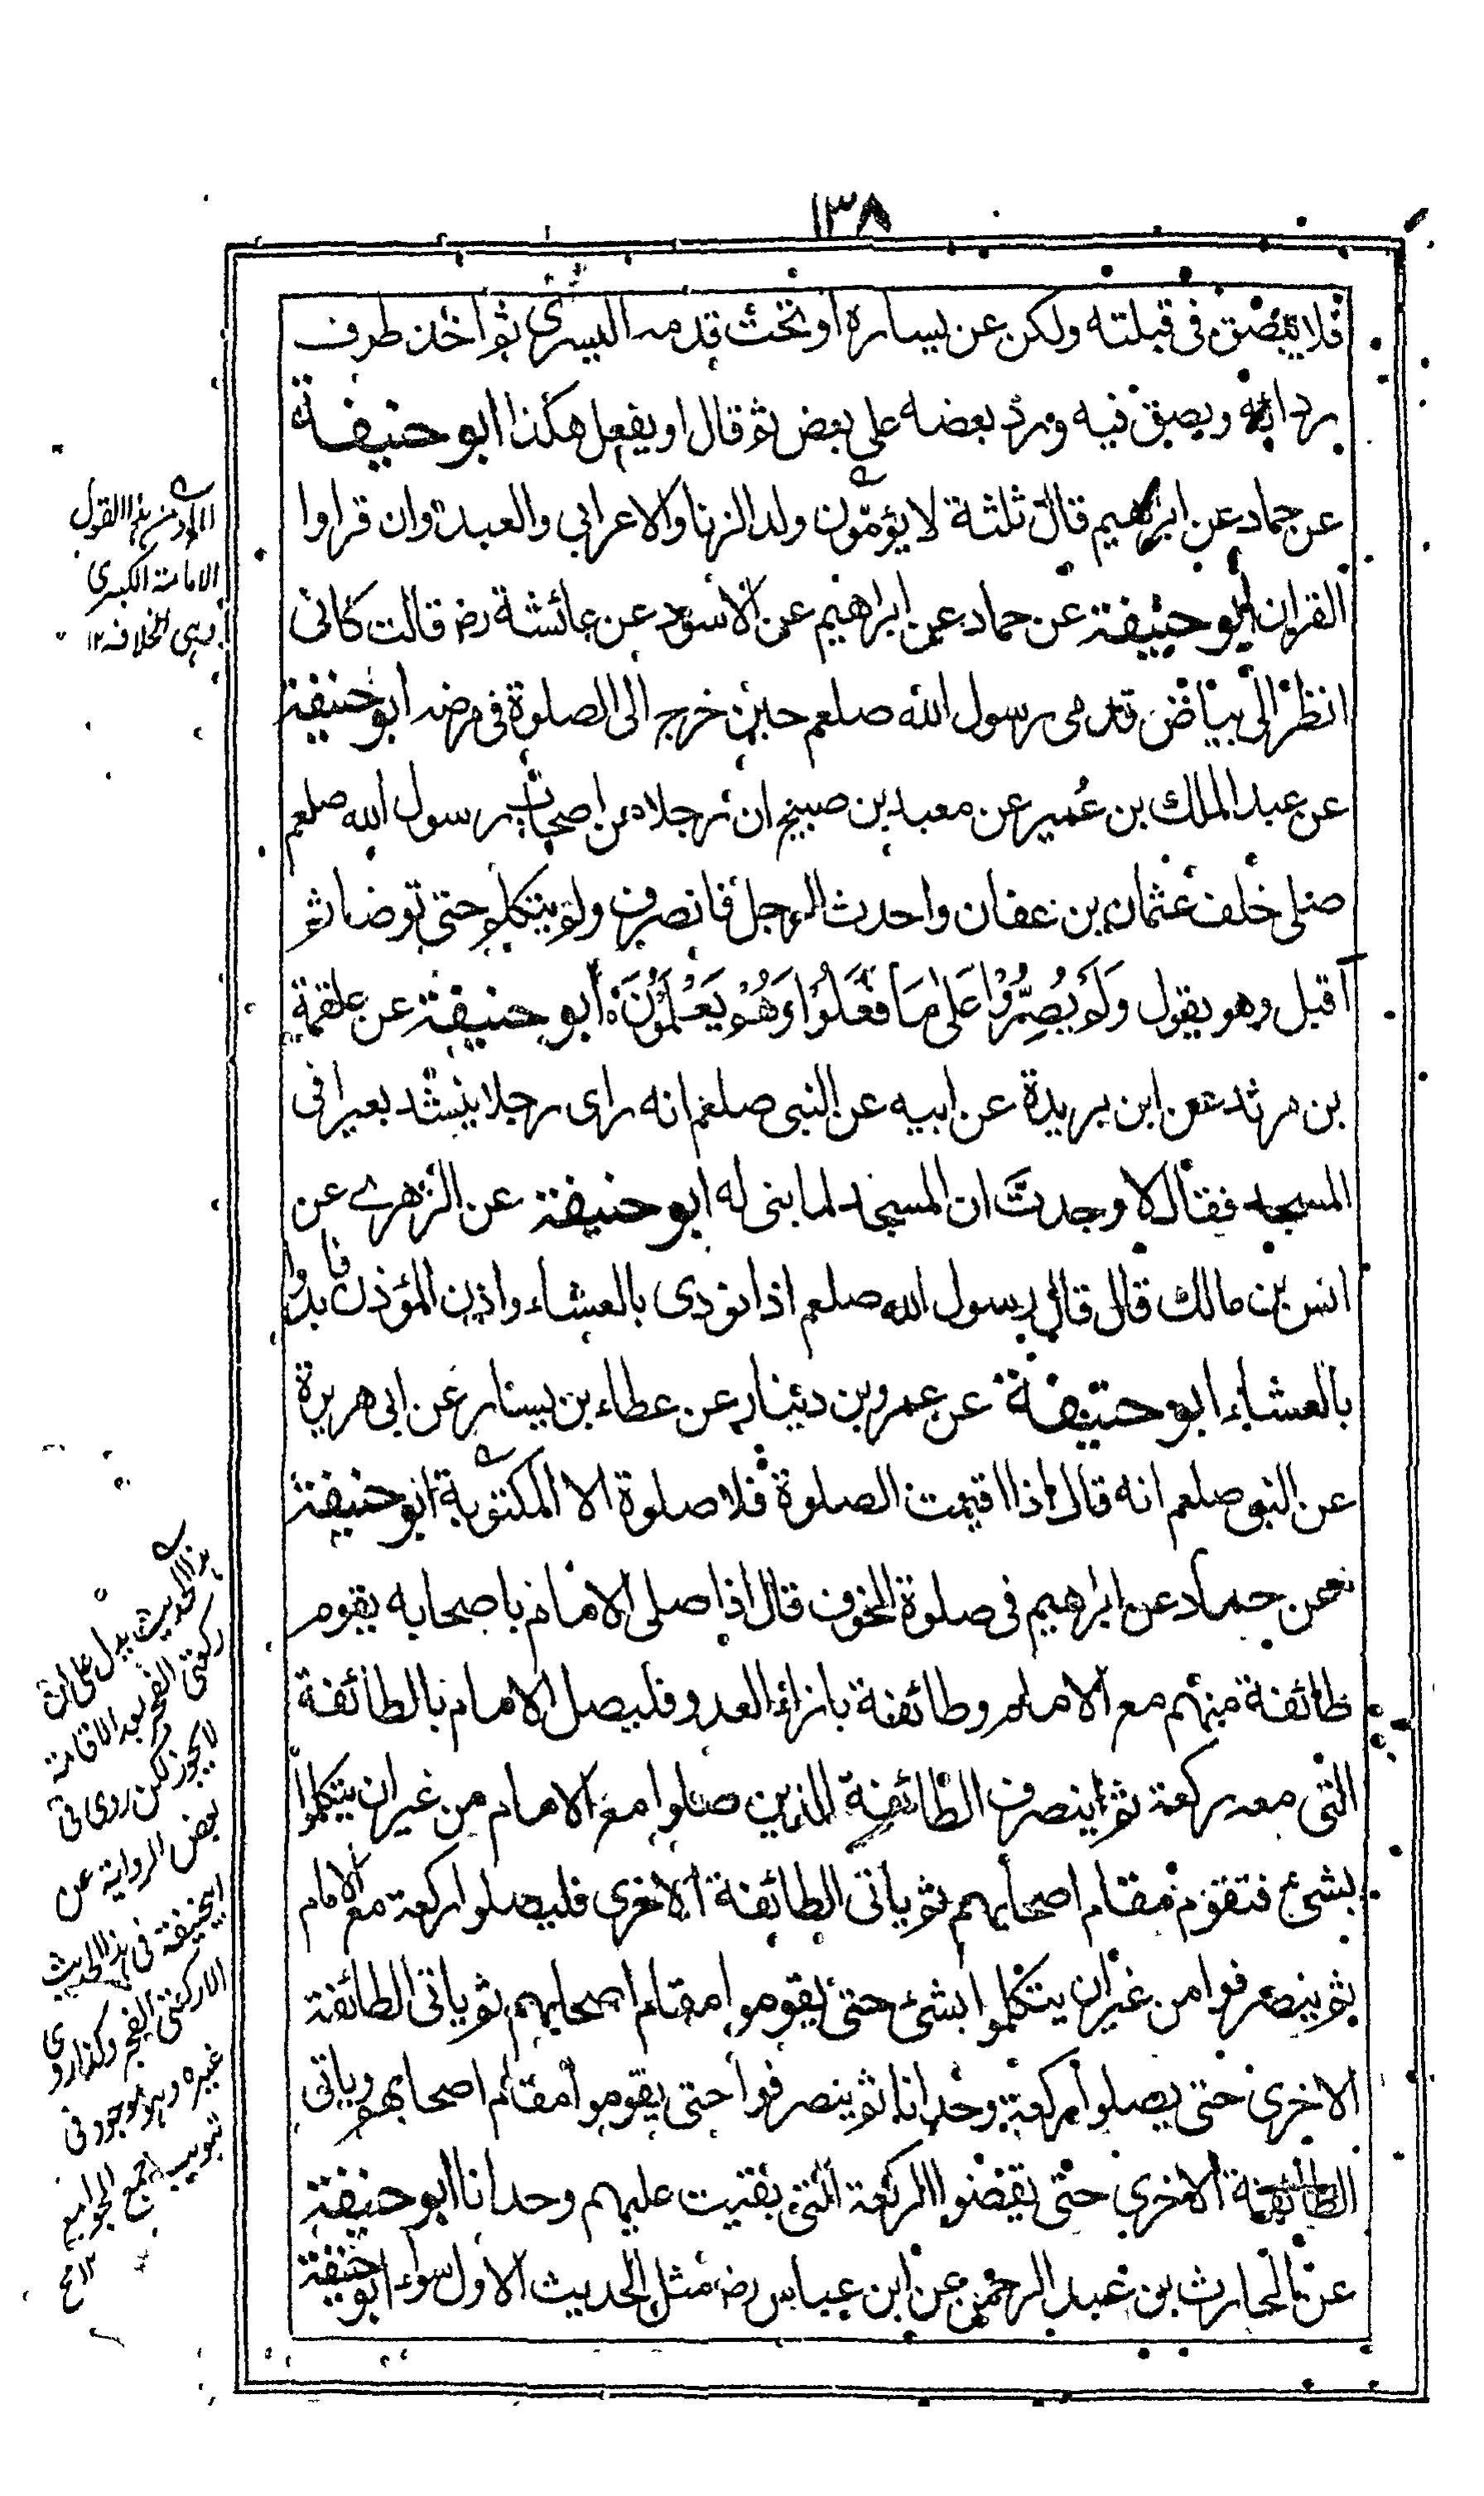 ١٣٨
فلا يبصق فى قبلته ولكن عن يساره او تحت قدمه اليسرى ثم اخذ طرف
ردائه وبصق فيه ورد بعضه على بعض ثم قال او يفعل هكذا ابو حنيفة
عن حماد عن ابرهيم قال ثلثة لا يؤمون ولد الزنا والاعرابى والعبد وان قراوا
القران ابو حنيفة عن حماد عن ابراهيم عن الاسود عن عائشة رض قالت كانى
انظر الى بياض قدمى رسول الله صلعم حين خرج الى الصلوة فى مرضه ابو حنيفة
عن عبد الملك بن عُمير عن معبد بن صبيح ان رجلا من اصحاب رسول الله صلعم
صلى خلف عثمان بن عفان واحدث الرجل فانصرف ولم يتكلم حتى توضا ثم
اقبل وهو يقول وَلَمْ يُصِرُّوْا عَلٰى مَا فَعَلُوْا وَهُمْ يَعْلَمُوْنَ ابو حنيفة عن علقمة
بن مرثد عن ابن بريدة عن ابيه عن النبى صلعم انه راى رجلا ينشد بعيرا فى
المسجد فقال لا وجدتَ ان المسجد لما بنى له ابو حنيفة عن الزهرے عن
انس بن مالك قال قال رسول الله صلعم اذا نودى بالعشاء واذن المؤذن فابدؤا
بالعشاء ابو حنيفة عن عمرو بن دينار عن عطاء بن يسار عن ابى هريرة
عن النبى صلعم انه قال اذا اقيمت الصلوة فلا صلوة الا المكتوبة ابو حنيفة
عن حماد عن ابرهيم فى صلوة الخوف قال اذا صلى الامام باصحابه يقوم
طائفة منهم مع الامام وطائفة بازاء العدو فليصل الامام بالطائفة
التى معه ركعة ثم ينصرف الطائفة الذين صلوا مع الامام من غير ان يتكلموا
بشئ فتقوم مقام اصحابهم ثم ياتى الطائفة الاخرى فليصلوا ركعة مع الامام
ثم ينصرفوا من غير ان يتكلموا بشئ حتى يقوموا مقام اصحابهم ثم ياتى الطائفة
الاخرى حتى يصلوا ركعة وحدانا ثم ينصرفوا حتى يقوموا مقام اصحابهم وياتى
الطائفة الاخرى حتى يقضوا الركعة التى بقيت عليهم وحدانا ابو حنيفة
عن الحارث بن عبد الرحمن عن ابن عباس رض مثل الحديث الاول سواء ابو حنيفة
القول
الامامة الكبرى
وهى الخلافة ١٢
هذا الحديث يدل على ان
ركعتى الفجر بعد الاقامة
لا يجوز لكن روى فى
بعض الرواية عن
ابيحنيفة فى هذا الحديث
الا ركعتى الفجر وكذا روى
غيره وهو موجود فى
تبويب جمع الجوامع